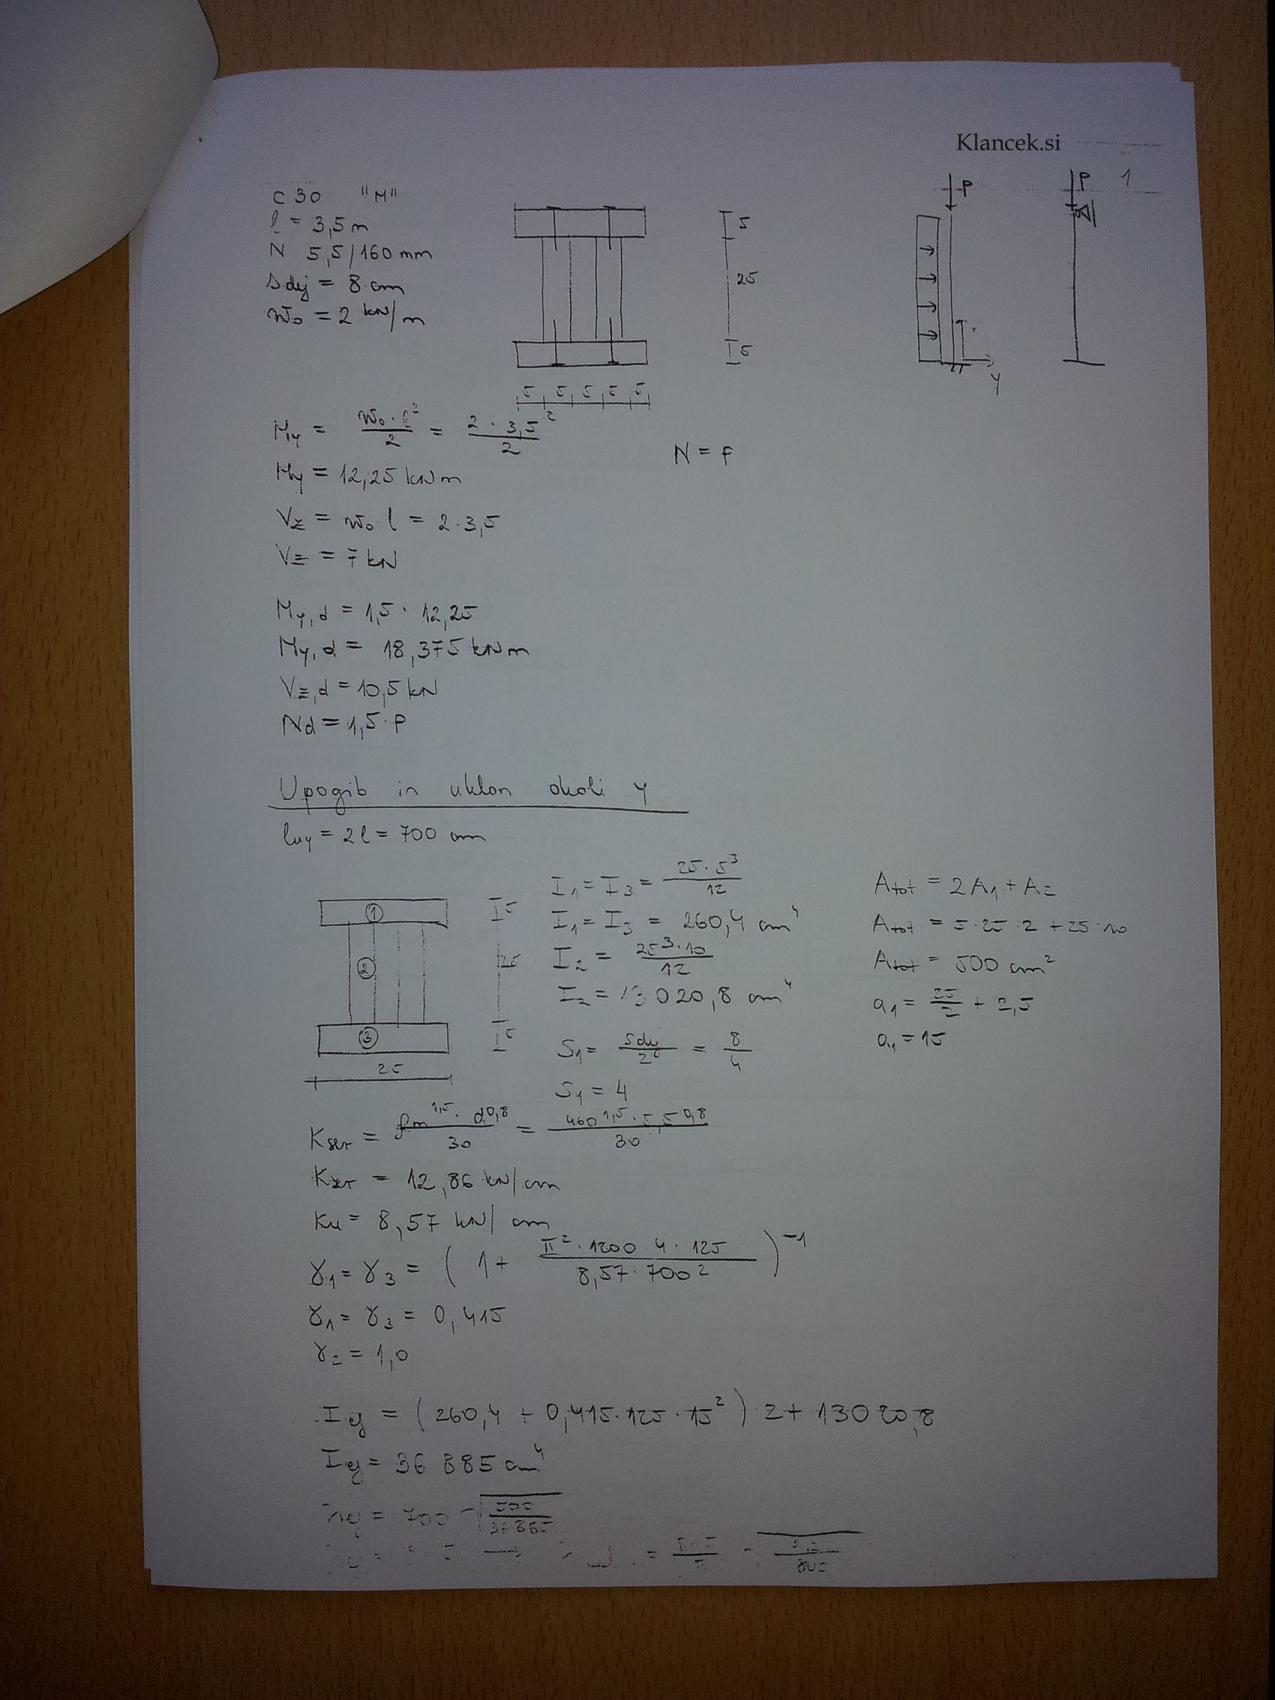 Klancek.si
1
C 30 "M"
l = 3,5 m
N 5,5/160 mm
sdej = 8 cm
w₀ = 2 kN/m
5
25
5
5 5 5 5 5
P
y
P
My = w₀ · l² / 2 = 2 · 3,5² / 2
N = P
My = 12,25 kNm
Vz = w₀ l = 2 · 3,5
Vz = 7 kN
My,d = 1,5 · 12,25
My,d = 18,375 kNm
Vz,d = 10,5 kN
Nd = 1,5 · P
Upogib in uklon okoli y
luy = 2l = 700 cm
1
2
3
5
25
5
25
I₁ = I₃ = 25 · 5³ / 12
I₁ = I₃ = 260,4 cm⁴
I₂ = 25³ · 10 / 12
I₂ = 13 020,8 cm⁴
S₁ = sdej / 2 = 8 / 4
S₁ = 4
Atot = 2A₁ + A₂
Atot = 5 · 25 · 2 + 25 · 10
Atot = 500 cm²
a₁ = 25/2 + 2,5
a₁ = 15
Kser = ρm^1,5 · d^0,8 / 30 = 460^1,5 · 5,5^0,8 / 30
Kser = 12,86 kN/cm
Ku = 8,57 kN/cm
γ₁ = γ₃ = (1 + π² · 1200 · 4 · 125 / 8,57 · 700²)⁻¹
γ₁ = γ₃ = 0,415
γ₂ = 1,0
Iy = (260,4 + 0,415 · 125 · 15²) · 2 + 13020,8
Iy = 36 885 cm⁴
= 700 · √(500 / 36 885)